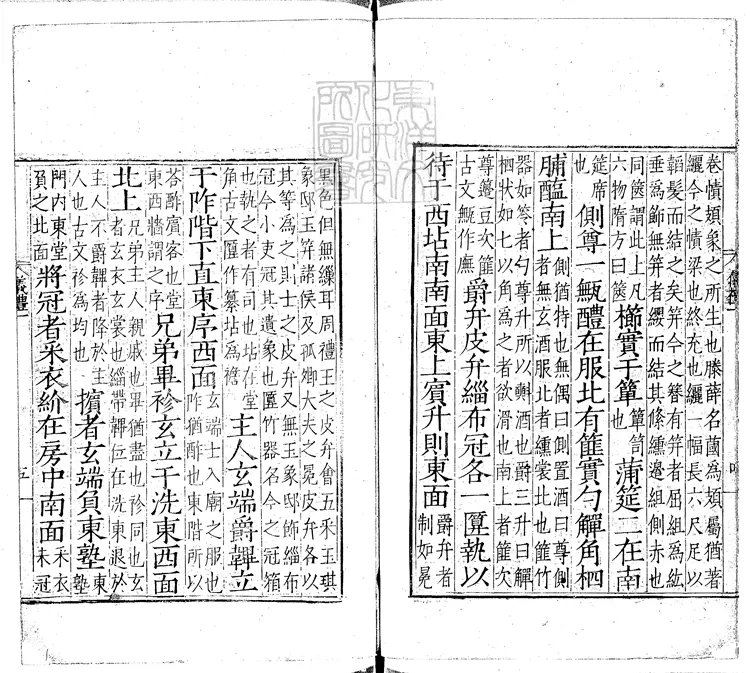 卷幘頍象之所生也滕薛名蔮為頍屬猶著
纚今之幘梁也終充也纚一幅長六尺足以
韜髮而結之矣笄今之簪有笄者屈組為紘
垂為飾無笄者纓而結其絛纁邊組側赤也
同篋謂此上凡六物隋方曰篋櫛實于簞簞笥也蒲筵二在南
筵席也側尊一甒醴在服北有篚實勺觶角柶
脯醢南上側猶特也無偶曰側置酒曰尊側者無玄酒服北者纁裳北也篚竹
器如笭者勺尊升所以㪺酒也爵三升曰觶
柶狀如匕以角為之者欲滑也南上者篚次
尊籩豆次篚古文甒作廡爵弁皮弁緇布冠各一匴執以
待于西坫南南面東上賓升則東面爵弁者制如冕
儀禮一
四
黑色但無繅耳周禮王之皮弁會五采玉琪
象邸玉笄諸侯及孤卿大夫之冕皮弁各以
其等為之則士之皮弁又無玉象邸飾緇布
冠今小吏冠其遺象也匴竹器名今之冠箱
也執之者有司也坫在堂角古文匴作纂坫為襜主人玄端爵韠立
于阼階下直東序西面玄端士入廟之服也阼猶酢也東階所以
荅酢賓客也堂東西牆謂之序兄弟畢袗玄立于洗東西面
北上兄弟主人親戚也畢猶盡也袗同也玄者玄衣玄裳也緇帶韠位在洗東退於
主人不爵韠者降於主人也古文袗為均也擯者玄端負東塾東塾
門內東堂負之北面將冠者采衣紒在房中南面采衣未冠
儀禮一
五